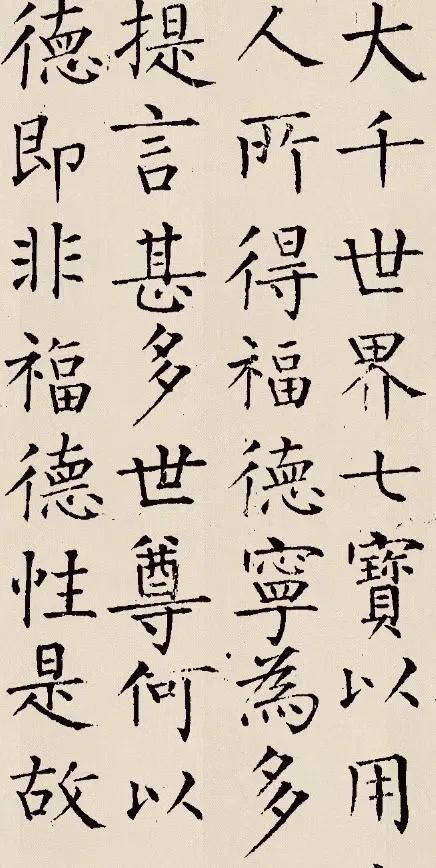 大千世界七寶以用
人所得福德寧為多
提言甚多世尊何以
德即非福德性是故